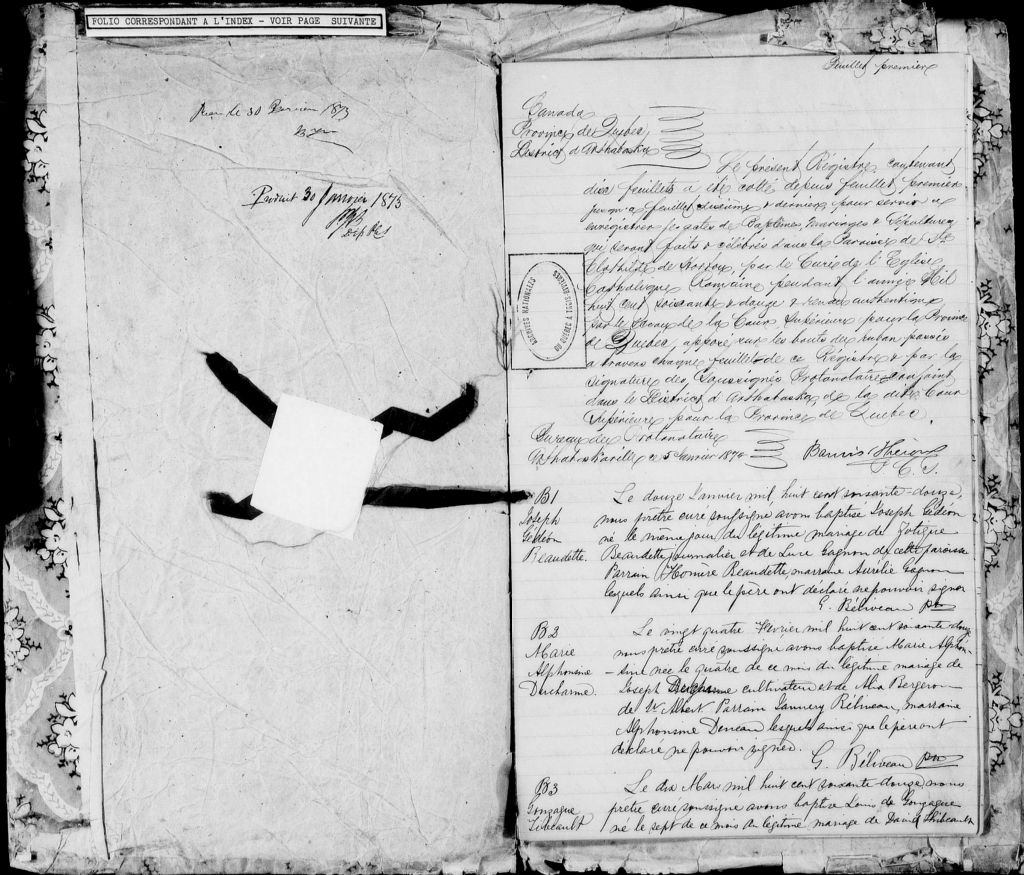 FOLIO CORRESPONDANT A L'INDEX - VOIR PAGE SUIVANTE
30 1873
Produit 30 Janvier 1873
Dép.
Feuillet premier
Canada
Province de Québec
District d'Arthabaska
Le présent Registre contenant
dix feuillets a été coté depuis feuillet premier
jusqu'à feuillet dixième & dernier pour servir à
enregistrer les actes de Baptêmes, Mariages & Sépultures
qui seront faits & célébrés dans la Paroisse de Ste
Clothilde de Horton, par le Curé de l'Eglise
Catholique Romaine pendant l'année Mil
huit cent soixante & douze & rendu authentique
par le Sceau de la Cour Supérieure pour la Province
de Québec, apposé sur les bouts du ruban passés
à travers chaque feuillet de ce Registre & par la
signature des Soussignés Protonotaire conjoint
dans le District d'Arthabaska de la dite Cour
Supérieure pour la Province de Québec.
Bureau du Protonotaire
Arthabaskaville ce 5 Janvier 1872
C. S.
ARCHIVES NATIONALES
DU QUEBEC A TROIS-RIVIERES
B1
Joseph
Gédéon
Beaudette.
Le douze Janvier mil huit cent soixante-douze,
nous prêtre curé soussigné avons baptisé Joseph Gédéon
né le même jour du légitime mariage de
Beaudette journalier et de Luce Gagnon de cette paroisse
Parrain Homère Beaudette, marraine Aurélie Gagnon
lesquels ainsi que le père ont déclaré ne pouvoir signer
G. Béliveau Ptre
B2
Marie
Alphonsine
Ducharme.
Le vingt quatre Fevrier mil huit cent soixante douze
nous prêtre curé soussigné avons baptisé Marie Alphon-
- sine née le quatre de ce mois du légitime mariage de
Joseph Ducharme cultivateur et de Bergeron
de St Albert Parrain Béliveau, marraine
Alphonsine lesquels ainsi que le père ont
déclaré ne pouvoir signer.
G. Béliveau Ptre
B3
Gonzague
Tibeault
Le dix Mars mil huit cent soixante douze nous
prêtre curé soussigné avons baptisé Louis de Gonzague
né le sept de ce mois du légitime mariage de David Thibeault